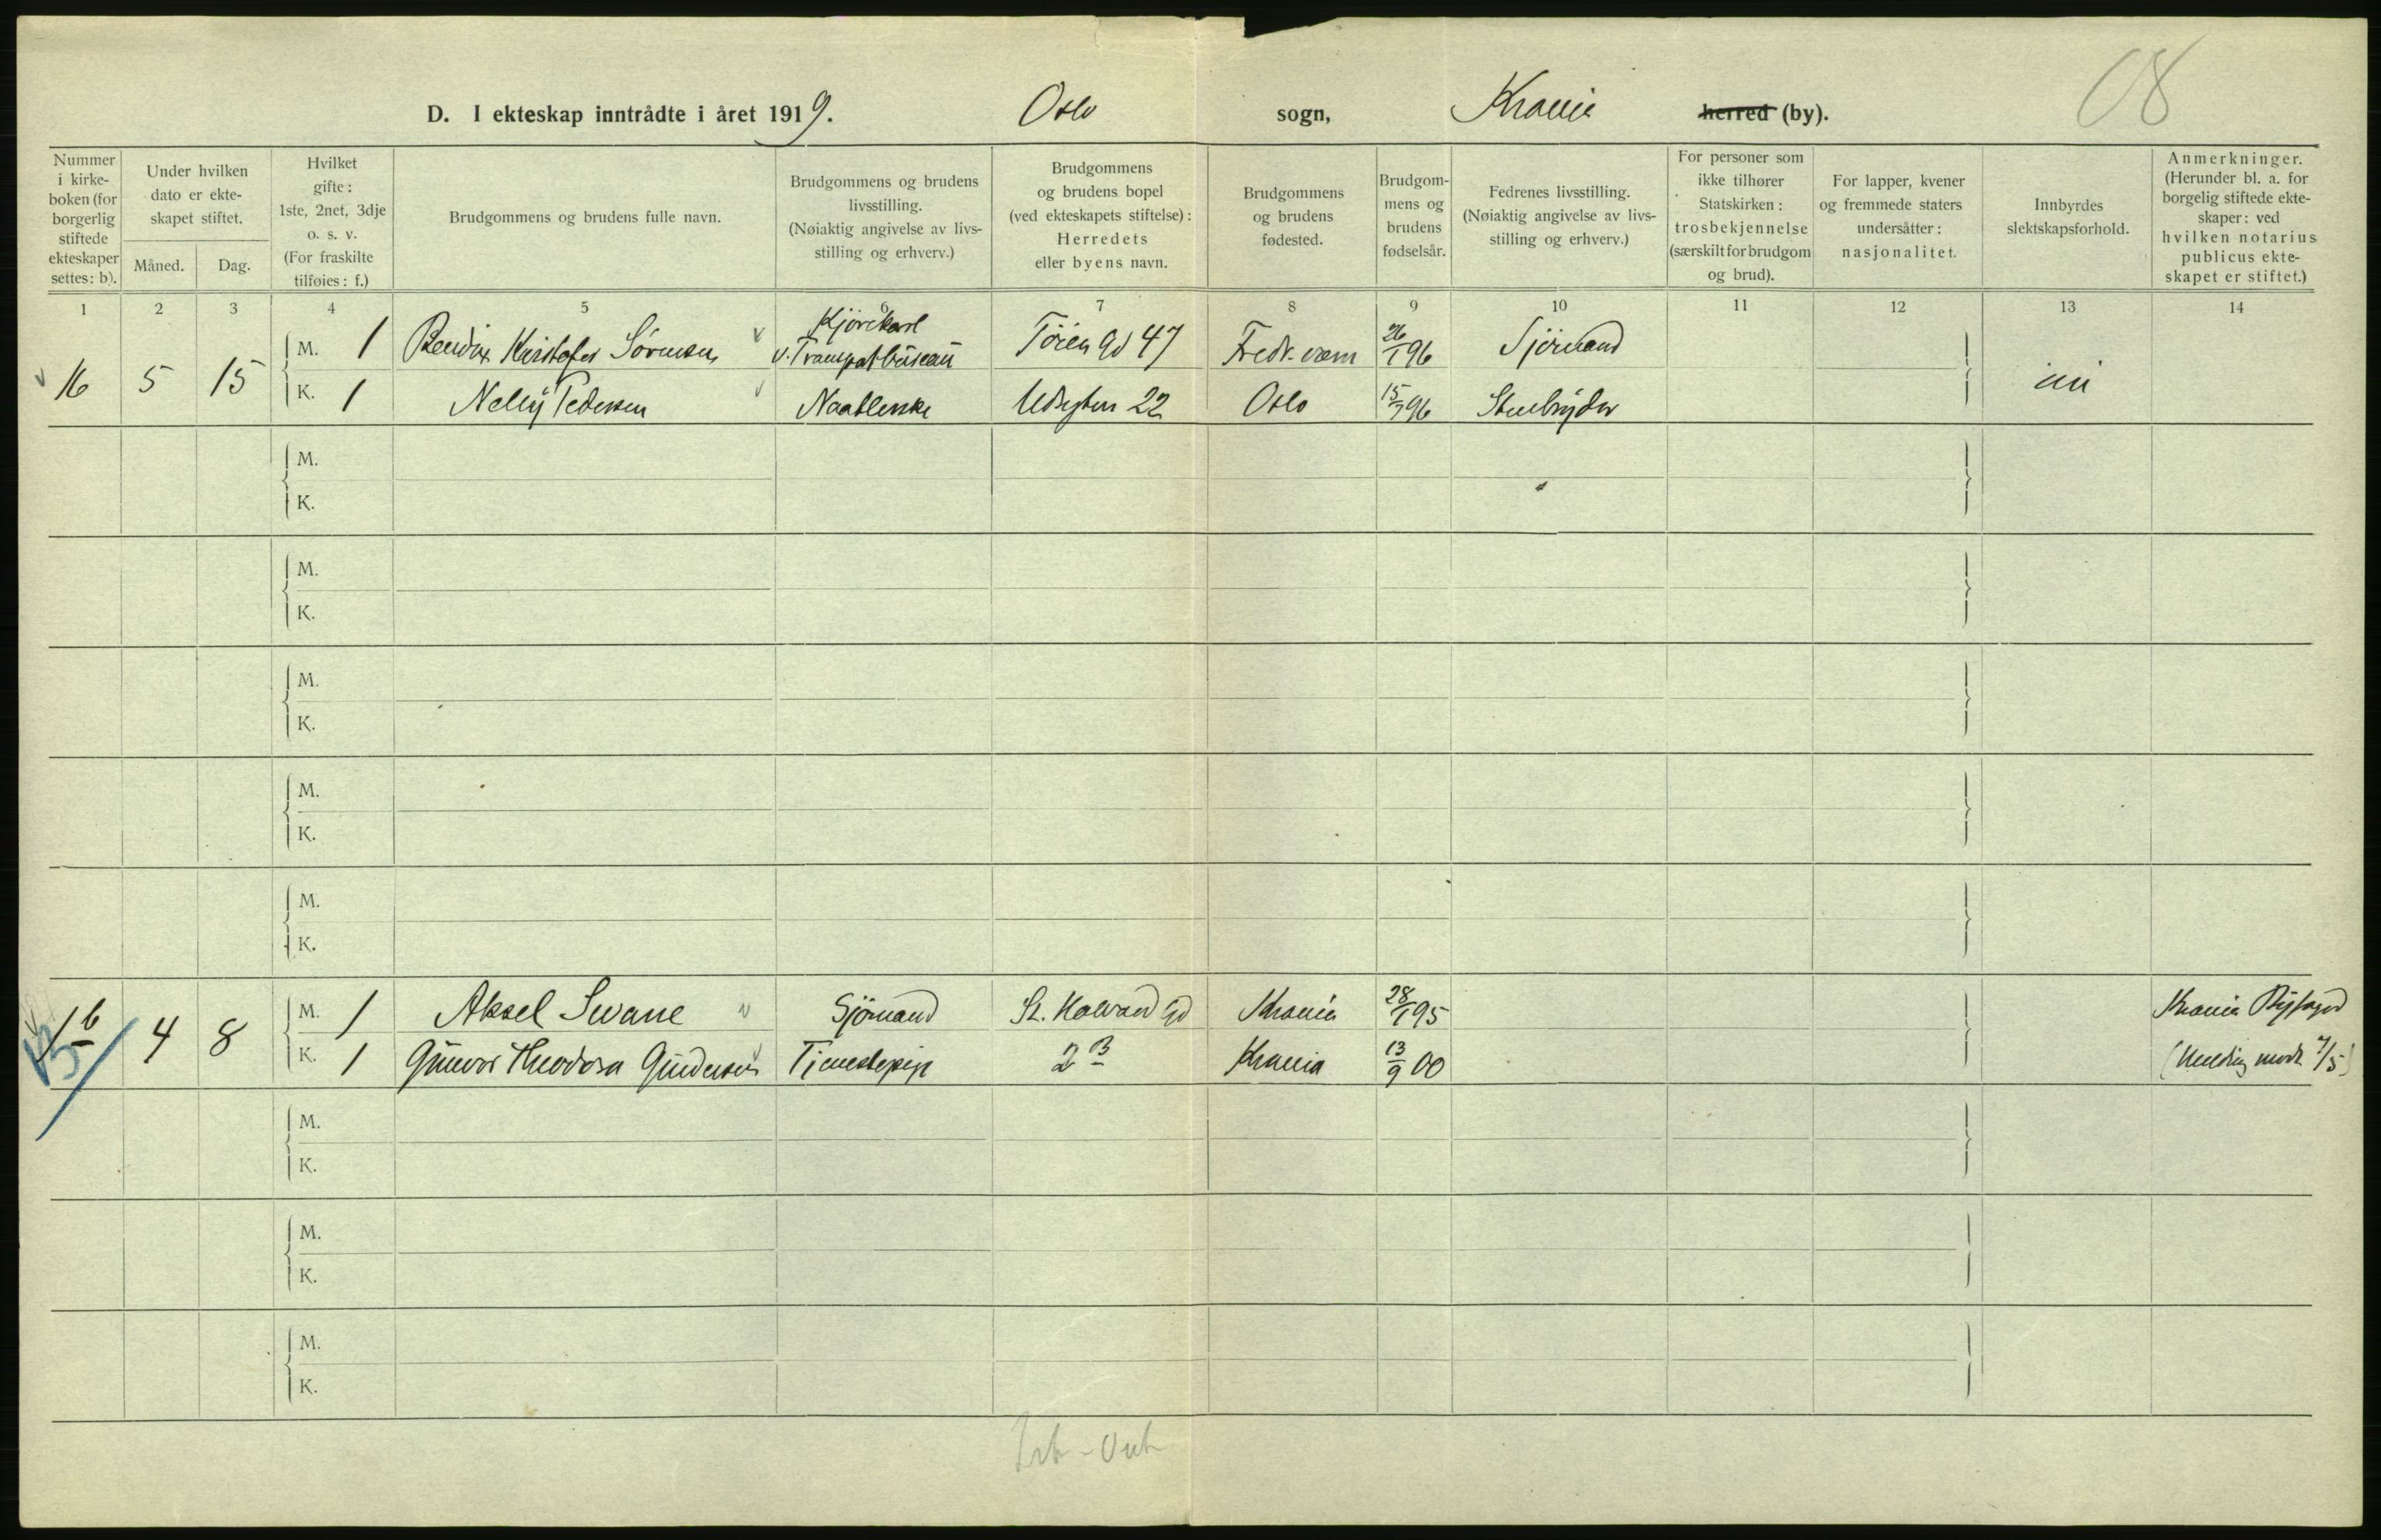 08
D. I ekteskap inntrådte i året 1919. Oslo sogn, Krania herred (by).
Nummer i kirkeboken (for borgerlig stiftede ekteskaper settes: b).
Under hvilken dato er ekteskapet stiftet.
Måned. Dag.
Hvilket gifte: 1ste, 2net, 3dje o. s. v. (For fraskilte tilføies: f.)
Brudgommens og brudens fulle navn.
Brudgommens og brudens livsstilling. (Nøiaktig angivelse av livsstilling og erhverv.)
Brudgommens og brudens bopel (ved ekteskapets stiftelse): Herredets eller byens navn.
Brudgommens og brudens fødested.
Brudgommens og brudens fødselsår.
Fedrenes livsstilling. (Nøiaktig angivelse av livsstilling og erhverv.)
For personer som ikke tilhører Statskirken: trosbekjennelse (særskilt for brudgom og brud).
For lapper, kvener og fremmede staters undersåtter: nasjonalitet.
Innbyrdes slektskapsforhold.
Anmerkninger. (Herunder bl. a. for borgerlig stiftede ekteskaper: ved hvilken notarius publicus ekteskapet er stiftet.)
1 2 3 4 5 6 7 8 9 10 11 12 13 14
16 5 15 M. 1 Bendix Kristofer Sörensen Kjörekarl v. Transportbureau Töien Gd 47 Fredr.værn 26/1 96 Sjömand
K. 1 Nelly Pedersen Naatlerske 22 Oslo 15/7 96 Stenbryder
M.
K.
M.
K.
M.
K.
M.
K.
M.
K.
15 b 4 8 M. 1 Aksel Svane Sjömand St. Halvard Gd Krania 28/1 95 Krania Byfogd
K. 1 Gunvor Theodora Gundersen Tjenestepige 2 B Krania 13/9 00 (Melding modt. 7/5)
M.
K.
M.
K.
M.
K.